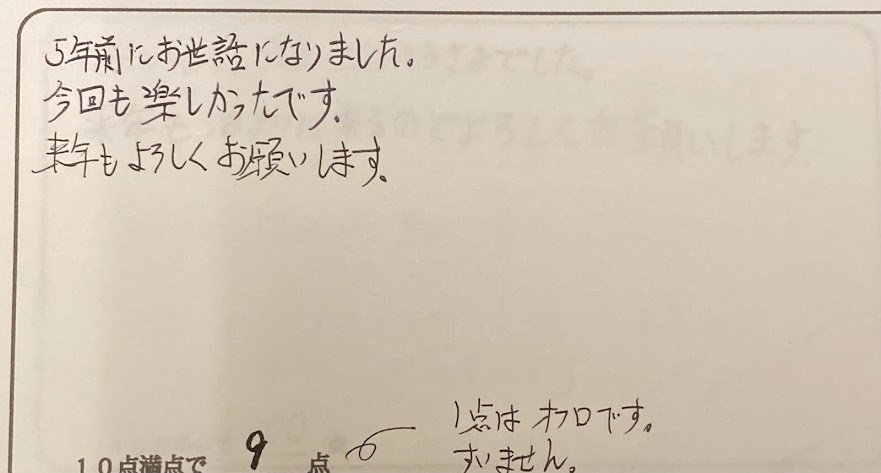 5年前にお世話になりました。
今回も楽しかったです。
来年もよろしくお願いします。
1点はオフロです。
すいません。
10点満点で 9 点